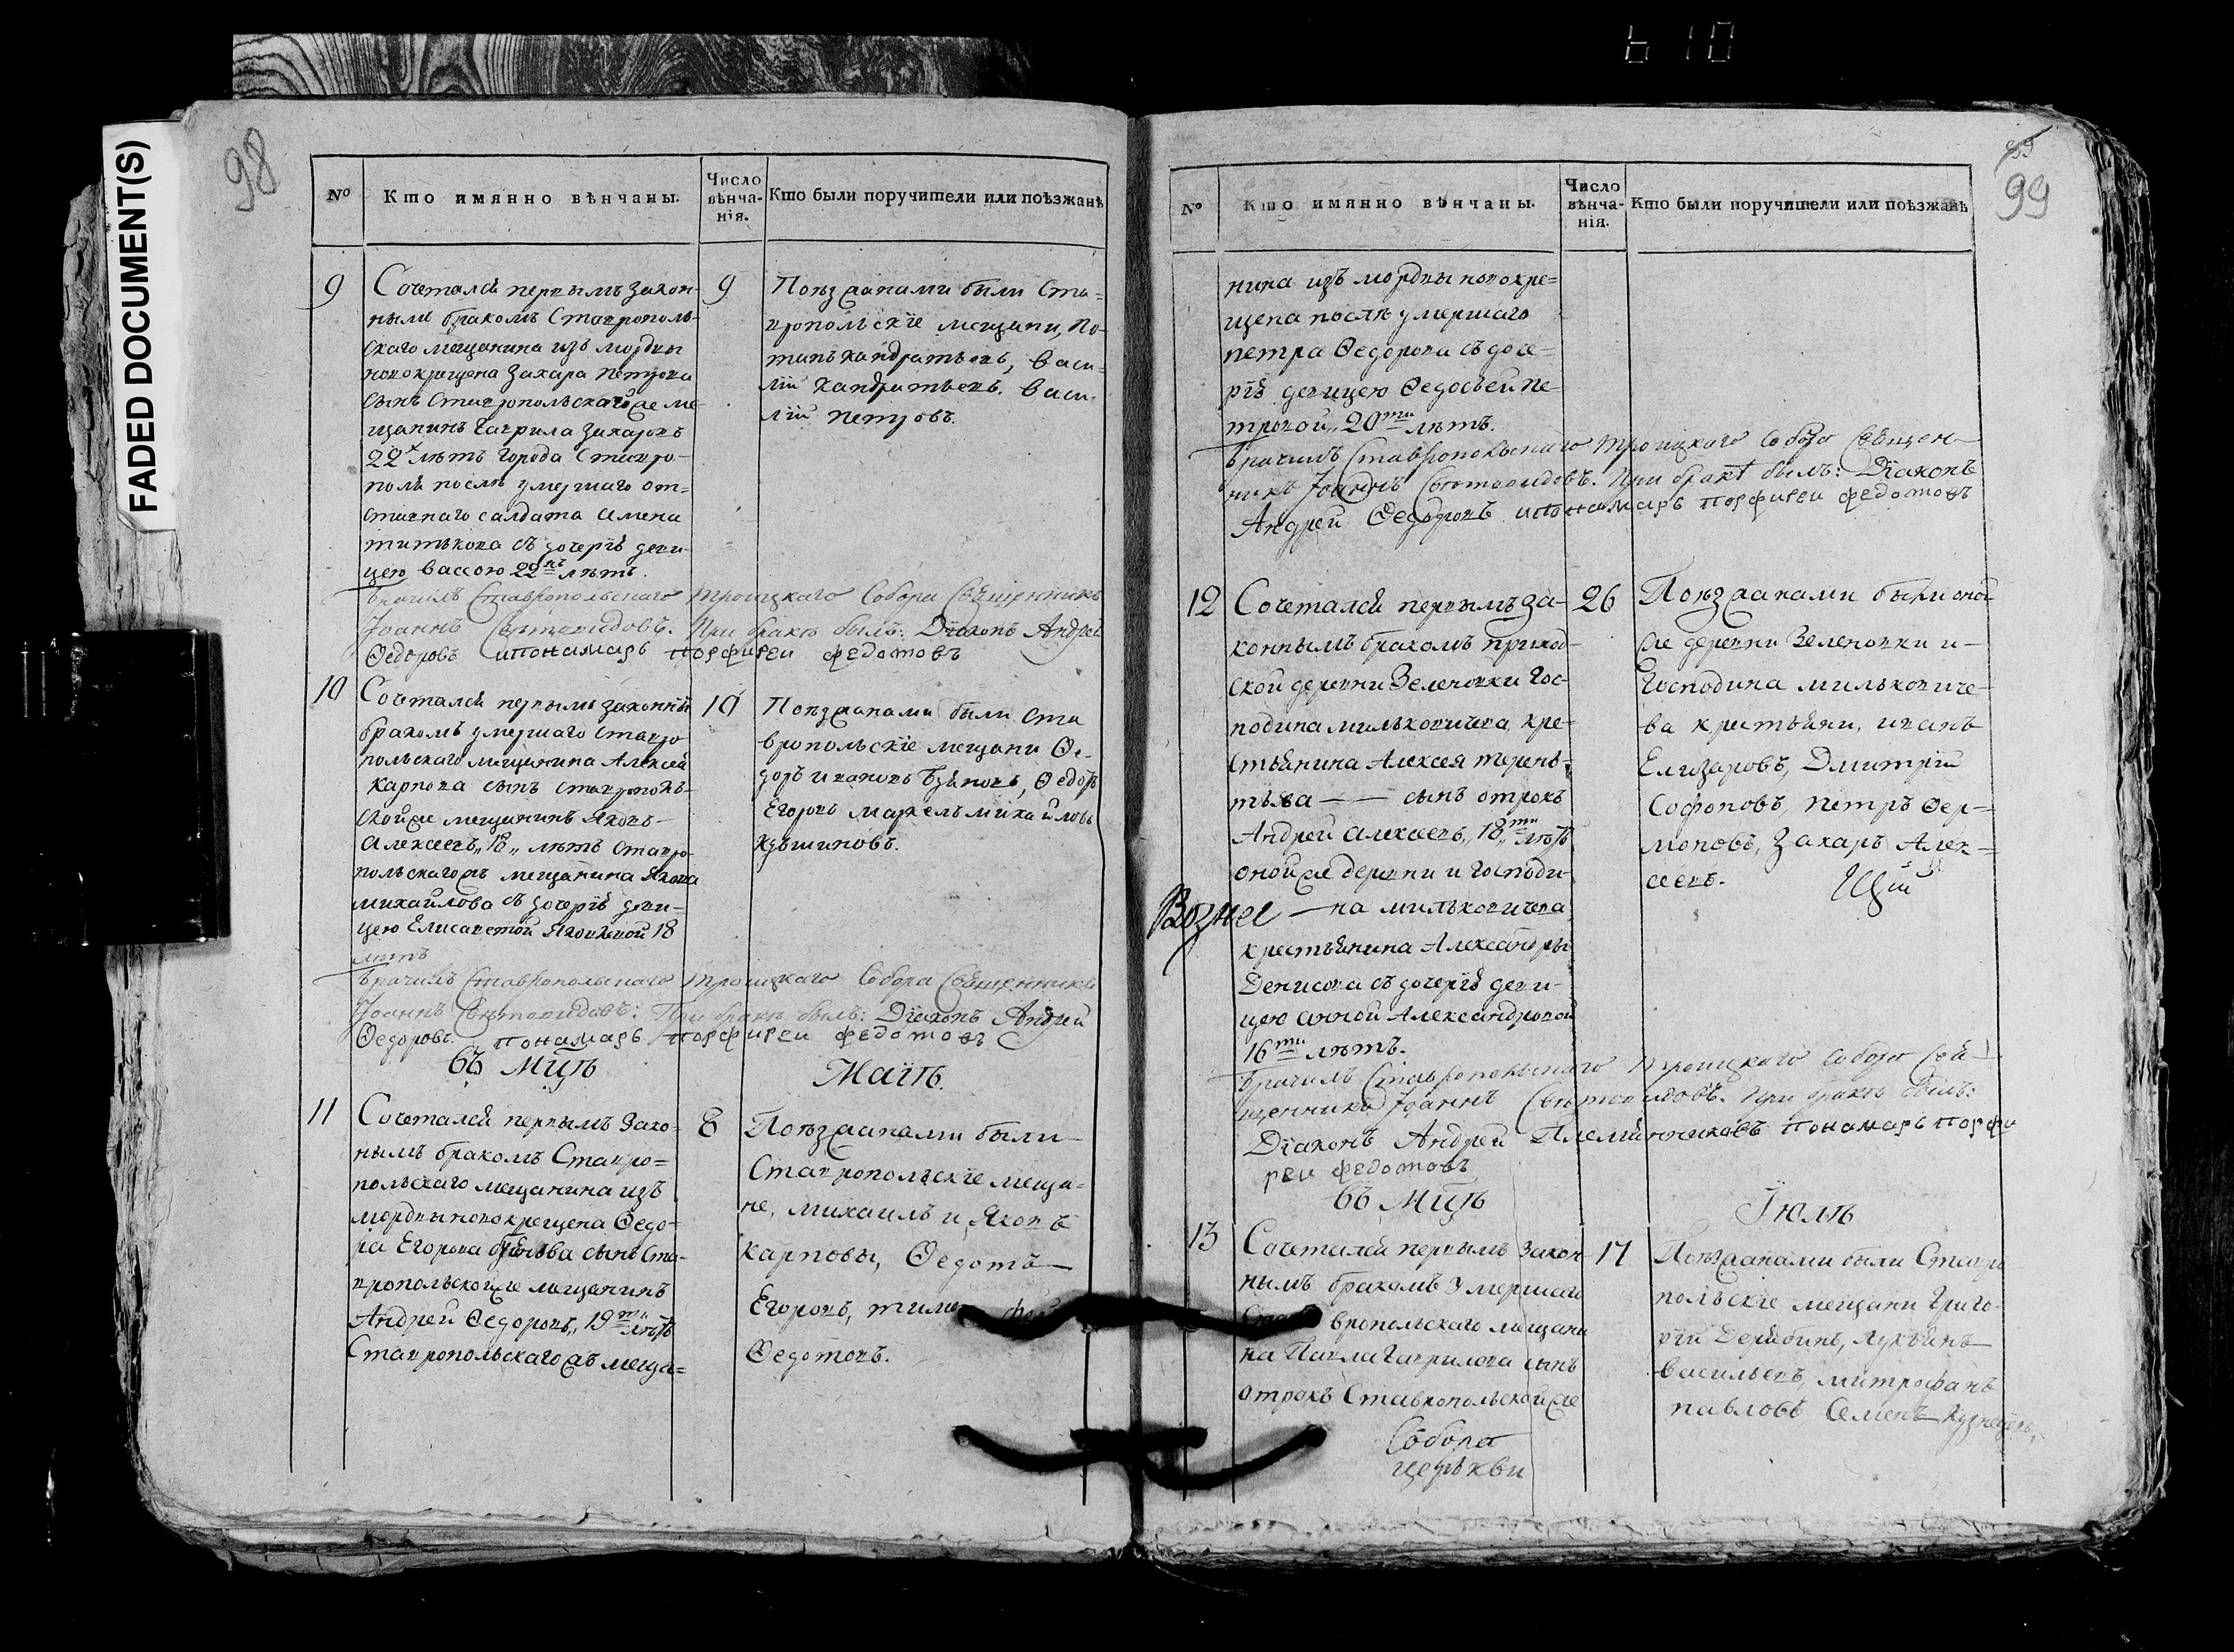 FADED DOCUMENT(S)
98
№ Кто имянно вѣнчаны. Число вѣнча-нія. Кто были поручители или поѣзжанѣ
9
Сочетался первымъ закон-
нымъ бракомъ Ставрополь-
скаго мещанина изъ мордвы
новокрещена Захара Петрова
сынъ Ставропольскагожъ ме-
щанинъ Гаврила Захаровъ
22 лѣтъ города Ставро-
поля послѣ умершаго от-
ставнаго салдата Семена
Титькова съ дочерїю деви-
цею Вассою 22 лѣтъ.
9
Поѣзжанами были Ста-
вропольскїе мещани, По-
тапъ Кандратьевъ, Васи-
лїи Кандратьевъ. Васи-
лїй Петровъ.
Врачилъ Ставропольскаго Троицкаго Собора Священникъ
Іоаннъ Свѣтовидовъ. При бракѣ былъ: Дїаконъ Андрей
Ѳедоровъ ипонамарь порфиреи федотовъ
10
Сочетался первымъ законны
бракомъ умершаго Ставро
польскаго мещанина Алексея
Карпова сынъ Ставрополь-
скойже мещанинъ Яковъ
Алексеевъ „18„ лѣтъ Ставро-
польскагожъ мещанина Якова
Михайлова съ дочерїю деви-
цею Елисаветой Яковлевой 18
лѣтъ
10
Поѣзжанами были Ста
вропольскїе мещани Ѳе-
доръ Ивановъ, Ѳедоръ
Егоровъ Маркелъ Михайловъ
Врачилъ Ставропольскаго Троицкаго Собора Священникъ
Іоаннъ Свѣтовидовъ: При бракѣ былъ: Дїаконъ Андрей
Ѳедоровъ. понамарь порфиреи федотовъ
въ Мцѣ Маїѣ.
11
Сочетался первымъ зако-
нымъ бракомъ Ставро-
польскаго мещанина изъ
мордвы новокрещена Ѳедо-
ра Егорова сынъ Ста-
вропольскойже мещанинъ
Андрей Ѳедоровъ, 19ти лѣтъ
Ставропольскагожъ меща-
8
Поѣзжанами были
Ставропольскїе меща-
не, Михаилъ и Яковъ
Карповы, Ѳедотъ
Егоровъ,
Ѳедотовъ.
99
№ Кто имянно вѣнчаны. Число вѣнча-нія. Кто были поручители или поѣзжанѣ
нина изъ мордвы новокре-
щена послѣ умершаго
Петра Ѳедорова съ доче-
рїю девицею Ѳедосьей Пе-
тровой „20ти лѣтъ.
Врачилъ Ставропольскаго Троицкаго Собора Священ-
никъ Іоаннъ Свѣтовидовъ. При бракѣ былъ: Дїаконъ
Андрей Ѳедоровъ ипонамарь порфиреи федотовъ
12
Сочетался первымъ за-
коннымъ бракомъ приход-
ской деревни Зеленовки Гос-
подина Мильковичева, кре-
стьянина Алексея Терень-
тьева — сынъ отрокъ
Андрей Алексеевъ, 18ти лѣтъ
онойже деревни и Господи-
на Мильковичева
крестьянина Александры
Денисова съ дочерїю деви-
цею Анной Александровой
16ти лѣтъ.
26
Поѣзжанами были оной
же деревни Зеленовки и
Господина Мильковиче-
ва крестьяни, Иванъ
Елизаровъ, Дмитрїй
Софоновъ, Петръ Фер-
моновъ, Захаръ Алек-
сеевъ.
Вознес
Врачилъ Ставропольскаго Троицкаго Собора Свя-
щенникъ Іоаннъ Свѣтовидовъ. При бракѣ былъ:
Дїаконъ Андрей Племянниковъ понамарь порфи
реи федотовъ
въ Мцѣ Їюлѣ
13
Сочетался первымъ закон
нымъ бракомъ умершаго
Ставропольскаго мещани
на Павла Гаврилова сынъ
отрокъ Ставропольскойже
17
Поѣзжанами были Ставро
польскїе мещани Григо-
рїй Дерябинъ, Лукьянъ
Васильевъ, Митрофанъ
Павловъ Семенъ Кузнецовъ,
Собора
церькви